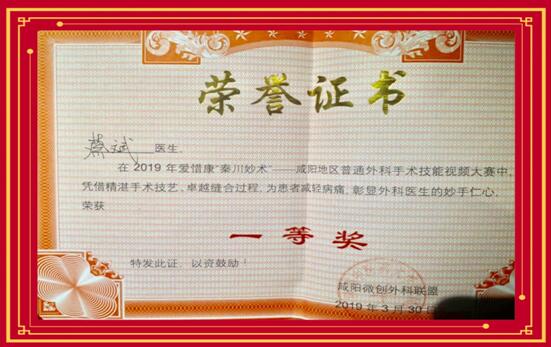 荣誉证书
斌 医生:
在 2019 年爱惜康“秦川妙术”——咸阳地区普通外科手术技能视频大赛中,
凭借精湛手术技艺、卓越缝合过程,为患者减轻病痛,彰显外科医生的妙手仁心,
荣获
一等奖
特发此证,以资鼓励!
咸阳微创外科联盟
2019 年 3 月 30